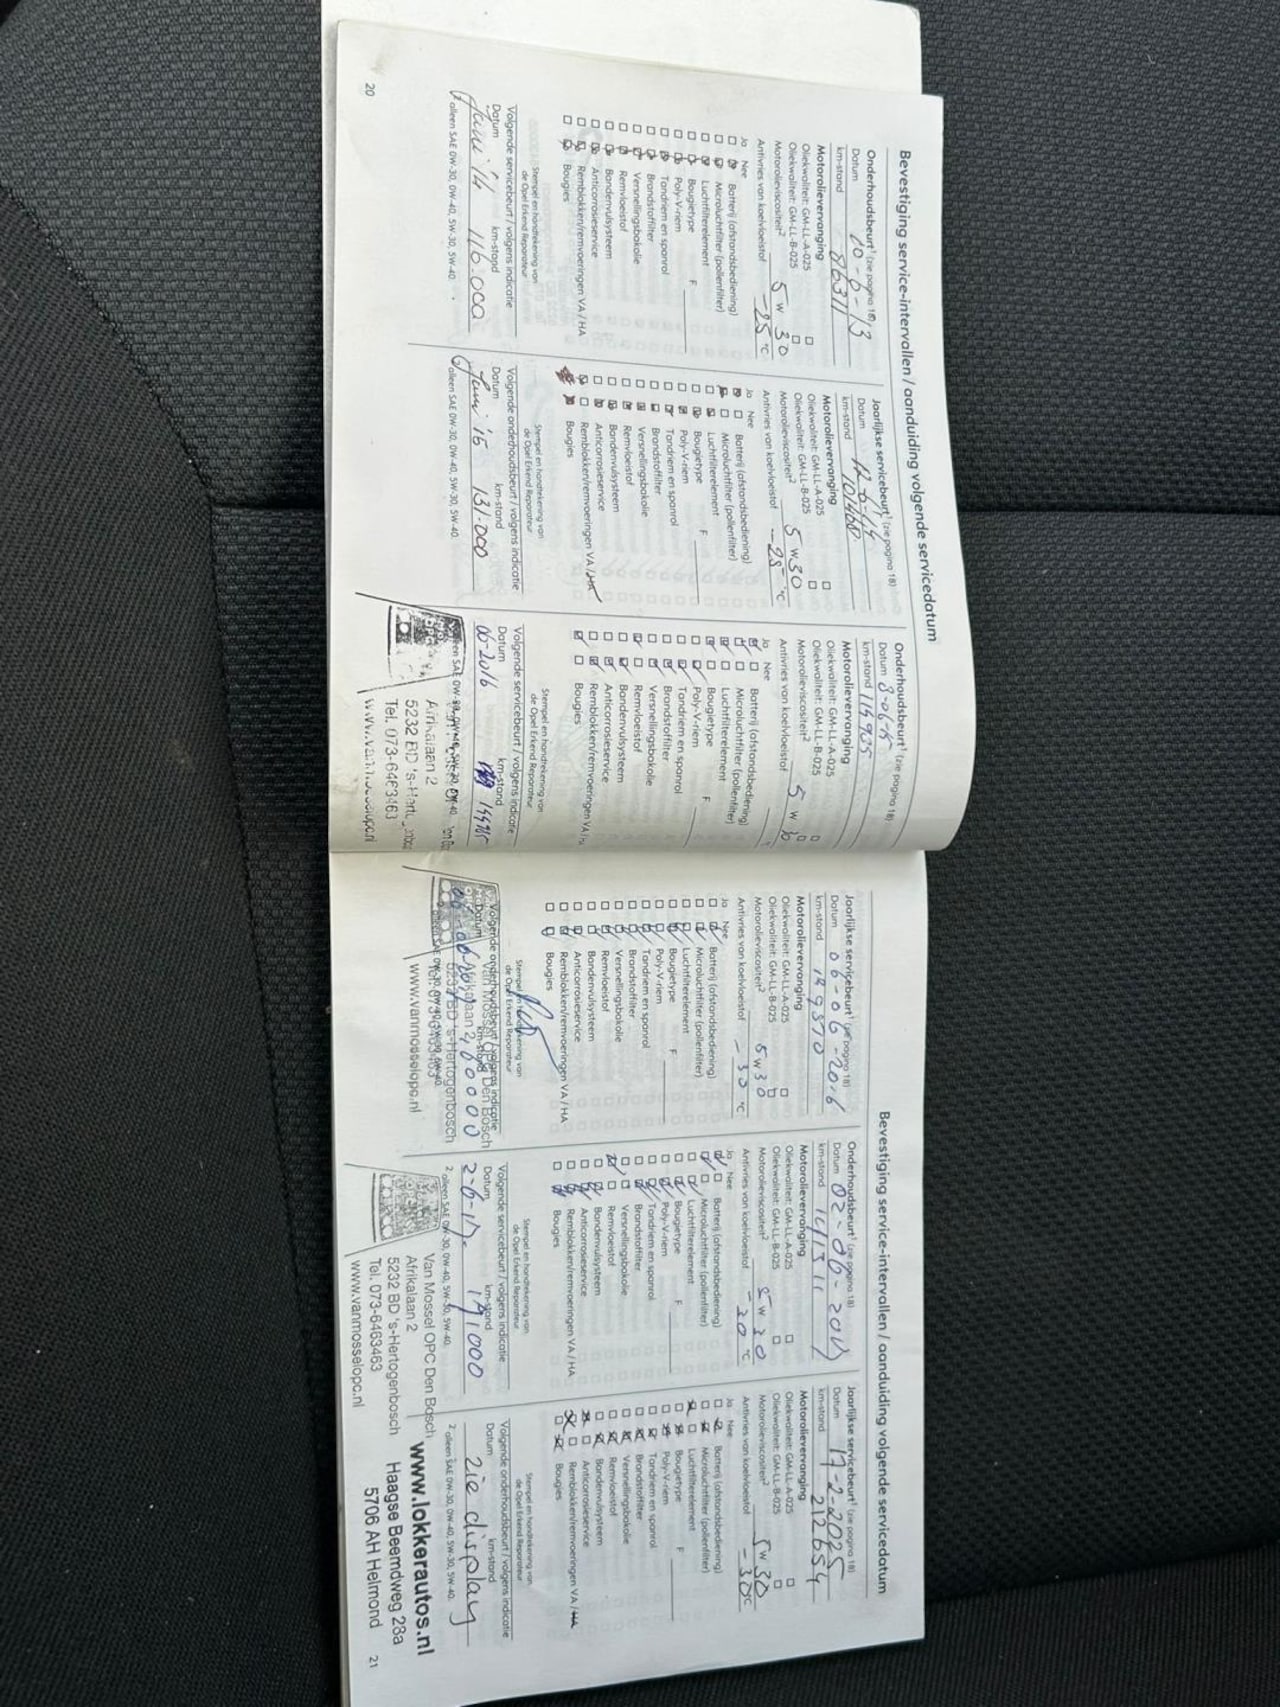 Bevestiging service-intervallen / aanduiding volgende servicedatum
Onderhoudsbeurt¹ (zie pagina 18)
Datum 10-6-13
km-stand 86311
Motorolievervanging
Oliekwaliteit: GM-LL-A-025
Oliekwaliteit: GM-LL-B-025
Motorolieviscositeit² 5 W 30
Antivries van koelvloeistof -25 °C
Ja Nee
Batterij (afstandsbediening)
Microluchtfilter (pollenfilter)
Luchtfilterelement
Bougietype F
Poly-V-riem
Tandriem en spanrol
Brandstoffilter
Versnellingsbakolie
Remvloeistof
Bandenvulsysteem
Anticorrosieservice
Remblokken/remvoeringen VA / HA
Bougies
Stempel en handtekening van
de Opel Erkend Reparateur
Volgende servicebeurt / volgens indicatie
Datum km-stand
Juni '14 116.000
² alleen SAE 0W-30, 0W-40, 5W-30, 5W-40.
20
Jaarlijkse servicebeurt¹ (zie pagina 18)
Datum
km-stand
Motorolievervanging
Oliekwaliteit: GM-LL-A-025
Oliekwaliteit: GM-LL-B-025
Motorolieviscositeit² 5 W 30
Antivries van koelvloeistof -25 °C
Ja Nee
Batterij (afstandsbediening)
Microluchtfilter (pollenfilter)
Luchtfilterelement
Bougietype F
Poly-V-riem
Tandriem en spanrol
Brandstoffilter
Versnellingsbakolie
Remvloeistof
Bandenvulsysteem
Anticorrosieservice
Remblokken/remvoeringen VA / HA
Bougies
Stempel en handtekening van
de Opel Erkend Reparateur
Volgende onderhoudsbeurt / volgens indicatie
Datum km-stand
Juni '15 131.000
² alleen SAE 0W-30, 0W-40, 5W-30, 5W-40.
Onderhoudsbeurt¹ (zie pagina 18)
Datum 3-06-15
km-stand 114985
Motorolievervanging
Oliekwaliteit: GM-LL-A-025
Oliekwaliteit: GM-LL-B-025
Motorolieviscositeit² 5 W 30
Antivries van koelvloeistof
Ja Nee
Batterij (afstandsbediening)
Microluchtfilter (pollenfilter)
Luchtfilterelement
Bougietype F
Poly-V-riem
Tandriem en spanrol
Brandstoffilter
Versnellingsbakolie
Remvloeistof
Bandenvulsysteem
Anticorrosieservice
Remblokken/remvoeringen VA
Bougies
Stempel en handtekening van
de Opel Erkend Reparateur
Volgende servicebeurt / volgens indicatie
Datum km-stand
06-2016 144985
Afrikalaan 2
5232 BD 's-Hert
Tel. 073-6463463
Bevestiging service-intervallen / aanduiding volgende servicedatum
Jaarlijkse servicebeurt¹ (zie pagina 18)
Datum 06-06-2016
km-stand
Motorolievervanging
Oliekwaliteit: GM-LL-A-025
Oliekwaliteit: GM-LL-B-025
Motorolieviscositeit² 5 W 30
Antivries van koelvloeistof -30 °C
Ja Nee
Batterij (afstandsbediening)
Microluchtfilter (pollenfilter)
Luchtfilterelement
Bougietype F
Poly-V-riem
Tandriem en spanrol
Brandstoffilter
Versnellingsbakolie
Remvloeistof
Bandenvulsysteem
Anticorrosieservice
Remblokken/remvoeringen VA / HA
Bougies
Stempel en handtekening van
de Opel Erkend Reparateur
Volgende onderhoudsbeurt / volgens indicatie
Datum km-stand
Van Mossel OPC Den Bosch
Afrikalaan 2
5232 BD 's-Hertogenbosch
Tel. 073-6463463
www.vanmosselopc.nl
Onderhoudsbeurt¹ (zie pagina 18)
Datum 02-06-2017
km-stand
Motorolievervanging
Oliekwaliteit: GM-LL-A-025
Oliekwaliteit: GM-LL-B-025
Motorolieviscositeit² 5 W 30
Antivries van koelvloeistof -20 °C
Ja Nee
Batterij (afstandsbediening)
Microluchtfilter (pollenfilter)
Luchtfilterelement
Bougietype F
Poly-V-riem
Tandriem en spanrol
Brandstoffilter
Versnellingsbakolie
Remvloeistof
Bandenvulsysteem
Anticorrosieservice
Remblokken/remvoeringen VA / HA
Bougies
Stempel en handtekening van
de Opel Erkend Reparateur
Volgende servicebeurt / volgens indicatie
Datum km-stand
2. alleen SAE 0W-30, 0W-40, 5W-30, 5W-40.
Van Mossel OPC Den Bosch
Afrikalaan 2
5232 BD 's-Hertogenbosch
Tel. 073-6463463
www.vanmosselopc.nl
Jaarlijkse servicebeurt¹ (zie pagina 18)
Datum 17-2-2025
km-stand 212654
Motorolievervanging
Oliekwaliteit: GM-LL-A-025
Oliekwaliteit: GM-LL-B-025
Motorolieviscositeit² 5 W 30
Antivries van koelvloeistof -30 °C
Ja Nee
Batterij (afstandsbediening)
Microluchtfilter (pollenfilter)
Luchtfilterelement
Bougietype F
Poly-V-riem
Tandriem en spanrol
Brandstoffilter
Versnellingsbakolie
Remvloeistof
Bandenvulsysteem
Anticorrosieservice
Remblokken/remvoeringen VA / HA
Bougies
Stempel en handtekening van
de Opel Erkend Reparateur
Volgende onderhoudsbeurt / volgens indicatie
Datum km-stand
zie display
2. alleen SAE 0W-30, 0W-40, 5W-30, 5W-40.
www.lokkerautos.nl
Haagse Beemdweg 23a
5706 AH Helmond
21